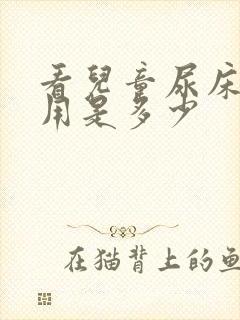 看兒童尿床
用是多少
在猫背上的鱼